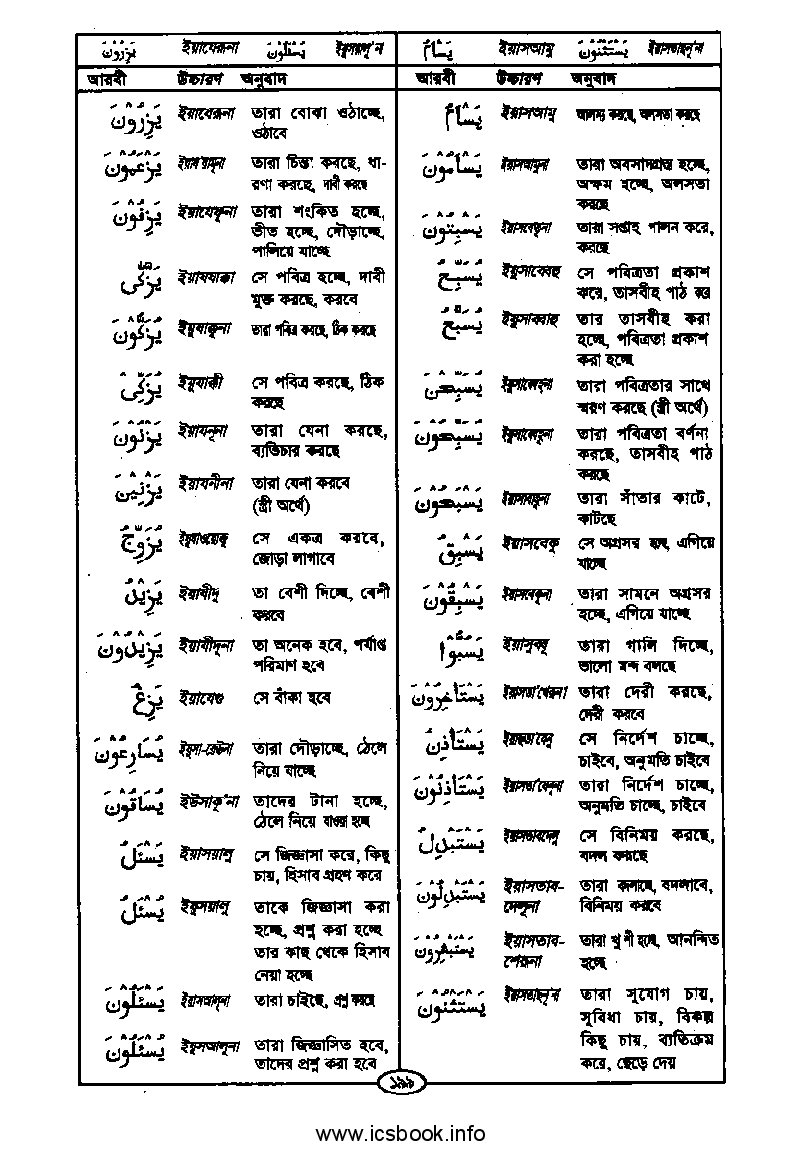 يَزِرُوْنَ ইয়াযেরূনা يُسْئَلُوْنَ ইয়ুসয়ালূনা
আরবী উচ্চারণ অনুবাদ
يَزِرُوْنَ ইয়াযেরূনা তারা বোঝা ওঠাচ্ছে,
ওঠাবে
يَزْعُمُوْنَ তারা চিন্তা করছে, ধা-
রণা করছে, দাবী করছে
يَزِفُّوْنَ ইয়াযেফ্ফূনা তারা শংকিত হচ্ছে,
ভীত হচ্ছে, দৌড়াচ্ছে,
পালিয়ে যাচ্ছে
يَزَّكّٰى ইয়াযযাক্কা সে পবিত্র হচ্ছে, দাবী
মুক্ত করছে, করবে
يُزَكُّوْنَ ইয়ুযাক্কূনা তারা পবিত্র করছে, ঠিক করছে
يُزَكِّىْ ইয়ুযাক্কী সে পবিত্র করছে, ঠিক
করছে
يَزْنُوْنَ ইয়াযনূনা তারা যেনা করছে,
ব্যভিচার করছে
يَزْنِيْنَ ইয়াযনীনা তারা যেনা করবে
(স্ত্রী অর্থে)
يُزَوِّجُ ইয়ুযাওয়েজু সে একত্র করবে,
জোড়া লাগাবে
يَزِيْدُ ইয়াযীদু তা বেশী দিচ্ছে, বেশী
করবে
يَزِيْدُوْنَ ইয়াযীদূনা তা অনেক হবে, পর্যাপ্ত
পরিমাণ হবে
يَزِغْ ইয়াযেগু সে বাঁকা হবে
يُسَارِعُوْنَ তারা দৌড়াচ্ছে, ঠেলে
নিয়ে যাচ্ছে
يُسَاقُوْنَ ইউসাকূনা তাদের টানা হচ্ছে,
ঠেলে নিয়ে যাওয়া হচ্ছে
يَسْئَلُ ইয়াসয়ালু সে জিজ্ঞাসা করে, কিছু
চায়, হিসাব গ্রহণ করে
يُسْئَلُ ইয়ুসয়ালু তাকে জিজ্ঞাসা করা
হচ্ছে, প্রশ্ন করা হচ্ছে
তার কাছ থেকে হিসাব
নেয়া হচ্ছে
يَسْئَلُوْنَ ইয়াসআলূনা তারা চাইছে, প্রশ্ন করছে
يُسْئَلُوْنَ ইয়ুসআলূনা তারা জিজ্ঞাসিত হবে,
তাদের প্রশ্ন করা হবে
يَسْاَمُ ইয়াসআমু يَسْتَثْنُوْنَ
আরবী উচ্চারণ অনুবাদ
يَسْاَمُ ইয়াসআমু আলস্য করছে, অলসতা করছে
يَسْاَمُوْنَ ইয়াসআমূনা তারা অবসাদগ্রস্ত হচ্ছে,
অক্ষম হচ্ছে, অলসতা
করছে
يَسْبِتُوْنَ ইয়াসবেতূনা তারা সপ্তাহ পালন করে,
করছে
يُسَبِّحُ ইয়ুসাব্বেহু সে পবিত্রতা প্রকাশ
করে, তাসবীহ পাঠ করে
يُسَبَّحُ ইয়ুসাব্বাহু তার তাসবীহ করা
হচ্ছে, পবিত্রতা প্রকাশ
করা হচ্ছে
يُسَبِّحْنَ ইয়ুসাব্বেহনা তারা পবিত্রতার সাথে
স্মরণ করছে (স্ত্রী অর্থে)
يُسَبِّحُوْنَ ইয়ুসাব্বেহূনা তারা পবিত্রতা বর্ণনা
করছে, তাসবীহ পাঠ
করছে
يَسْبَحُوْنَ ইয়াসবাহূনা তারা সাঁতার কাটে,
কাটছে
يَسْبِقُ ইয়াসবেকু সে অগ্রসর হচ্ছে, এগিয়ে
যাচ্ছে
يَسْبِقُوْنَ ইয়াসবেকূনা তারা সামনে অগ্রসর
হচ্ছে, এগিয়ে যাচ্ছে
يَسُبُّوْا ইয়াসুব্বু তারা গালি দিচ্ছে,
ভালো মন্দ বলছে
يَسْتَأْخِرُوْنَ তারা দেরী করছে,
দেরী করবে
يَسْتَأْذِنُ সে নির্দেশ চাচ্ছে,
চাইবে, অনুমতি চাইবে
يَسْتَأْذِنُوْنَ তারা নির্দেশ চাচ্ছে,
অনুমতি চাচ্ছে, চাইবে
يَسْتَبْدِلُ ইয়াসতাবদেলু সে বিনিময় করছে,
বদল করছে
يَسْتَبْدِلُوْنَ ইয়াসতাব- তারা বদলাচ্ছে, বদলাবে,
দেলূনা বিনিময় করবে
يَسْتَبْشِرُوْنَ ইয়াসতাব- তারা খুশী হচ্ছে, আনন্দিত
শেরূনা হচ্ছে
يَسْتَثْنُوْنَ তারা সুযোগ চায়,
সুবিধা চায়, বিকল্প
কিছু চায়, ব্যতিক্রম
করে, ছেড়ে দেয়
১৯৯
www.icsbook.info